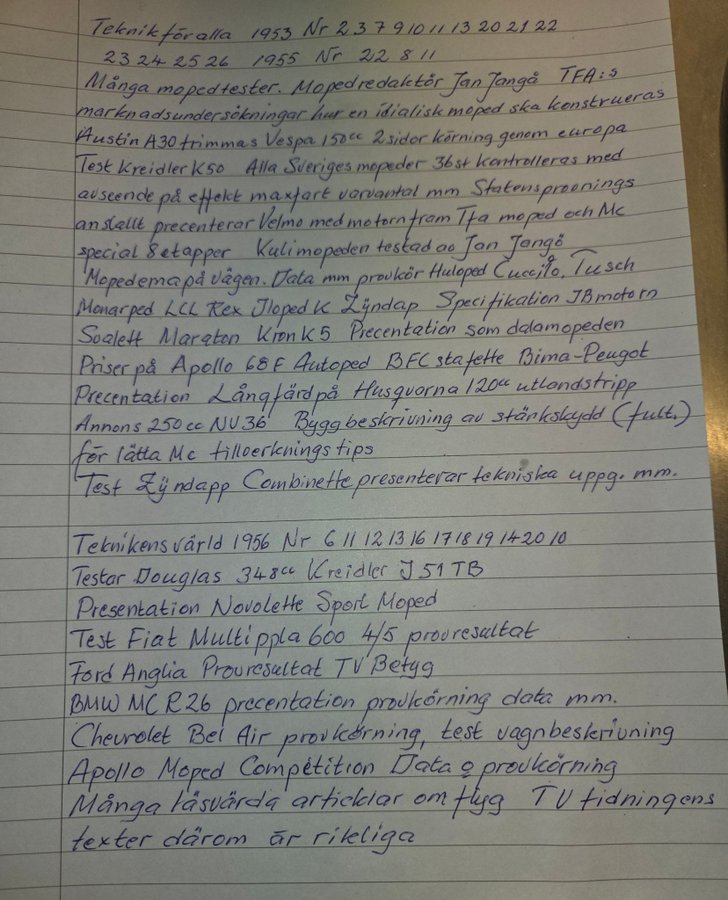 Teknikföralla 1953 Nr 2 3 7 9 10 11 13 20 21 22
23 24 25 26 1955 Nr 22 8 11
Många mopedtester. Mopedredaktör Jan Jangö TFA:s
marknadsundersökningar hur en idialisk moped ska konstrueras
Austin A30 trimmas Vespa 150cc 2 sidor körning genom europa
Test Kreidler K50 Alla Sveriges mopeder 36st kontrolleras med
avseende på effekt maxfart varvantal mm Statensprovnings
anstallt precenterar Velmo med motorn fram Tfa moped och Mc
special 8 etapper Kulimopeden testad av Jan Jangö
Mopederna på vägen. Data mm provkör Huloped Cucciło. Tusch
Monarped LCL Rex Iloped K Zyndap Specifikation JB motorn
Scalett Maraton Kron K5 Precentation som dalamopeden
Priser på Apollo 68 F Autoped BFC stafette Bima-Peugot
Precentation Långfärd på Husqvorna 120cc utlandstripp
Annons 250cc NV36 Byggbeskrivning av stänkskydd (fult.)
för lätta Mc tillverknings tips
Test Zyndapp Combinette presenterar tekniska uppg. mm.
Teknikensvärld 1956 Nr 6 11 12 13 16 17 18 19 14 20 10
Testar Douglas 348cc Kreidler J 51 TB
Presentation Novolette Sport Moped
Test Fiat Multippla 600 4/5 provresultat
Ford Anglia Provresultat TV Betyg
BMW MC R26 precentation provkörning data mm.
Chevrolet Bel Air provkörning, test vagnbeskrivning
Apollo Moped Compétition Data o provkörning
Många läsvärda articklar om flyg TV tidningens
texter därom är rikliga